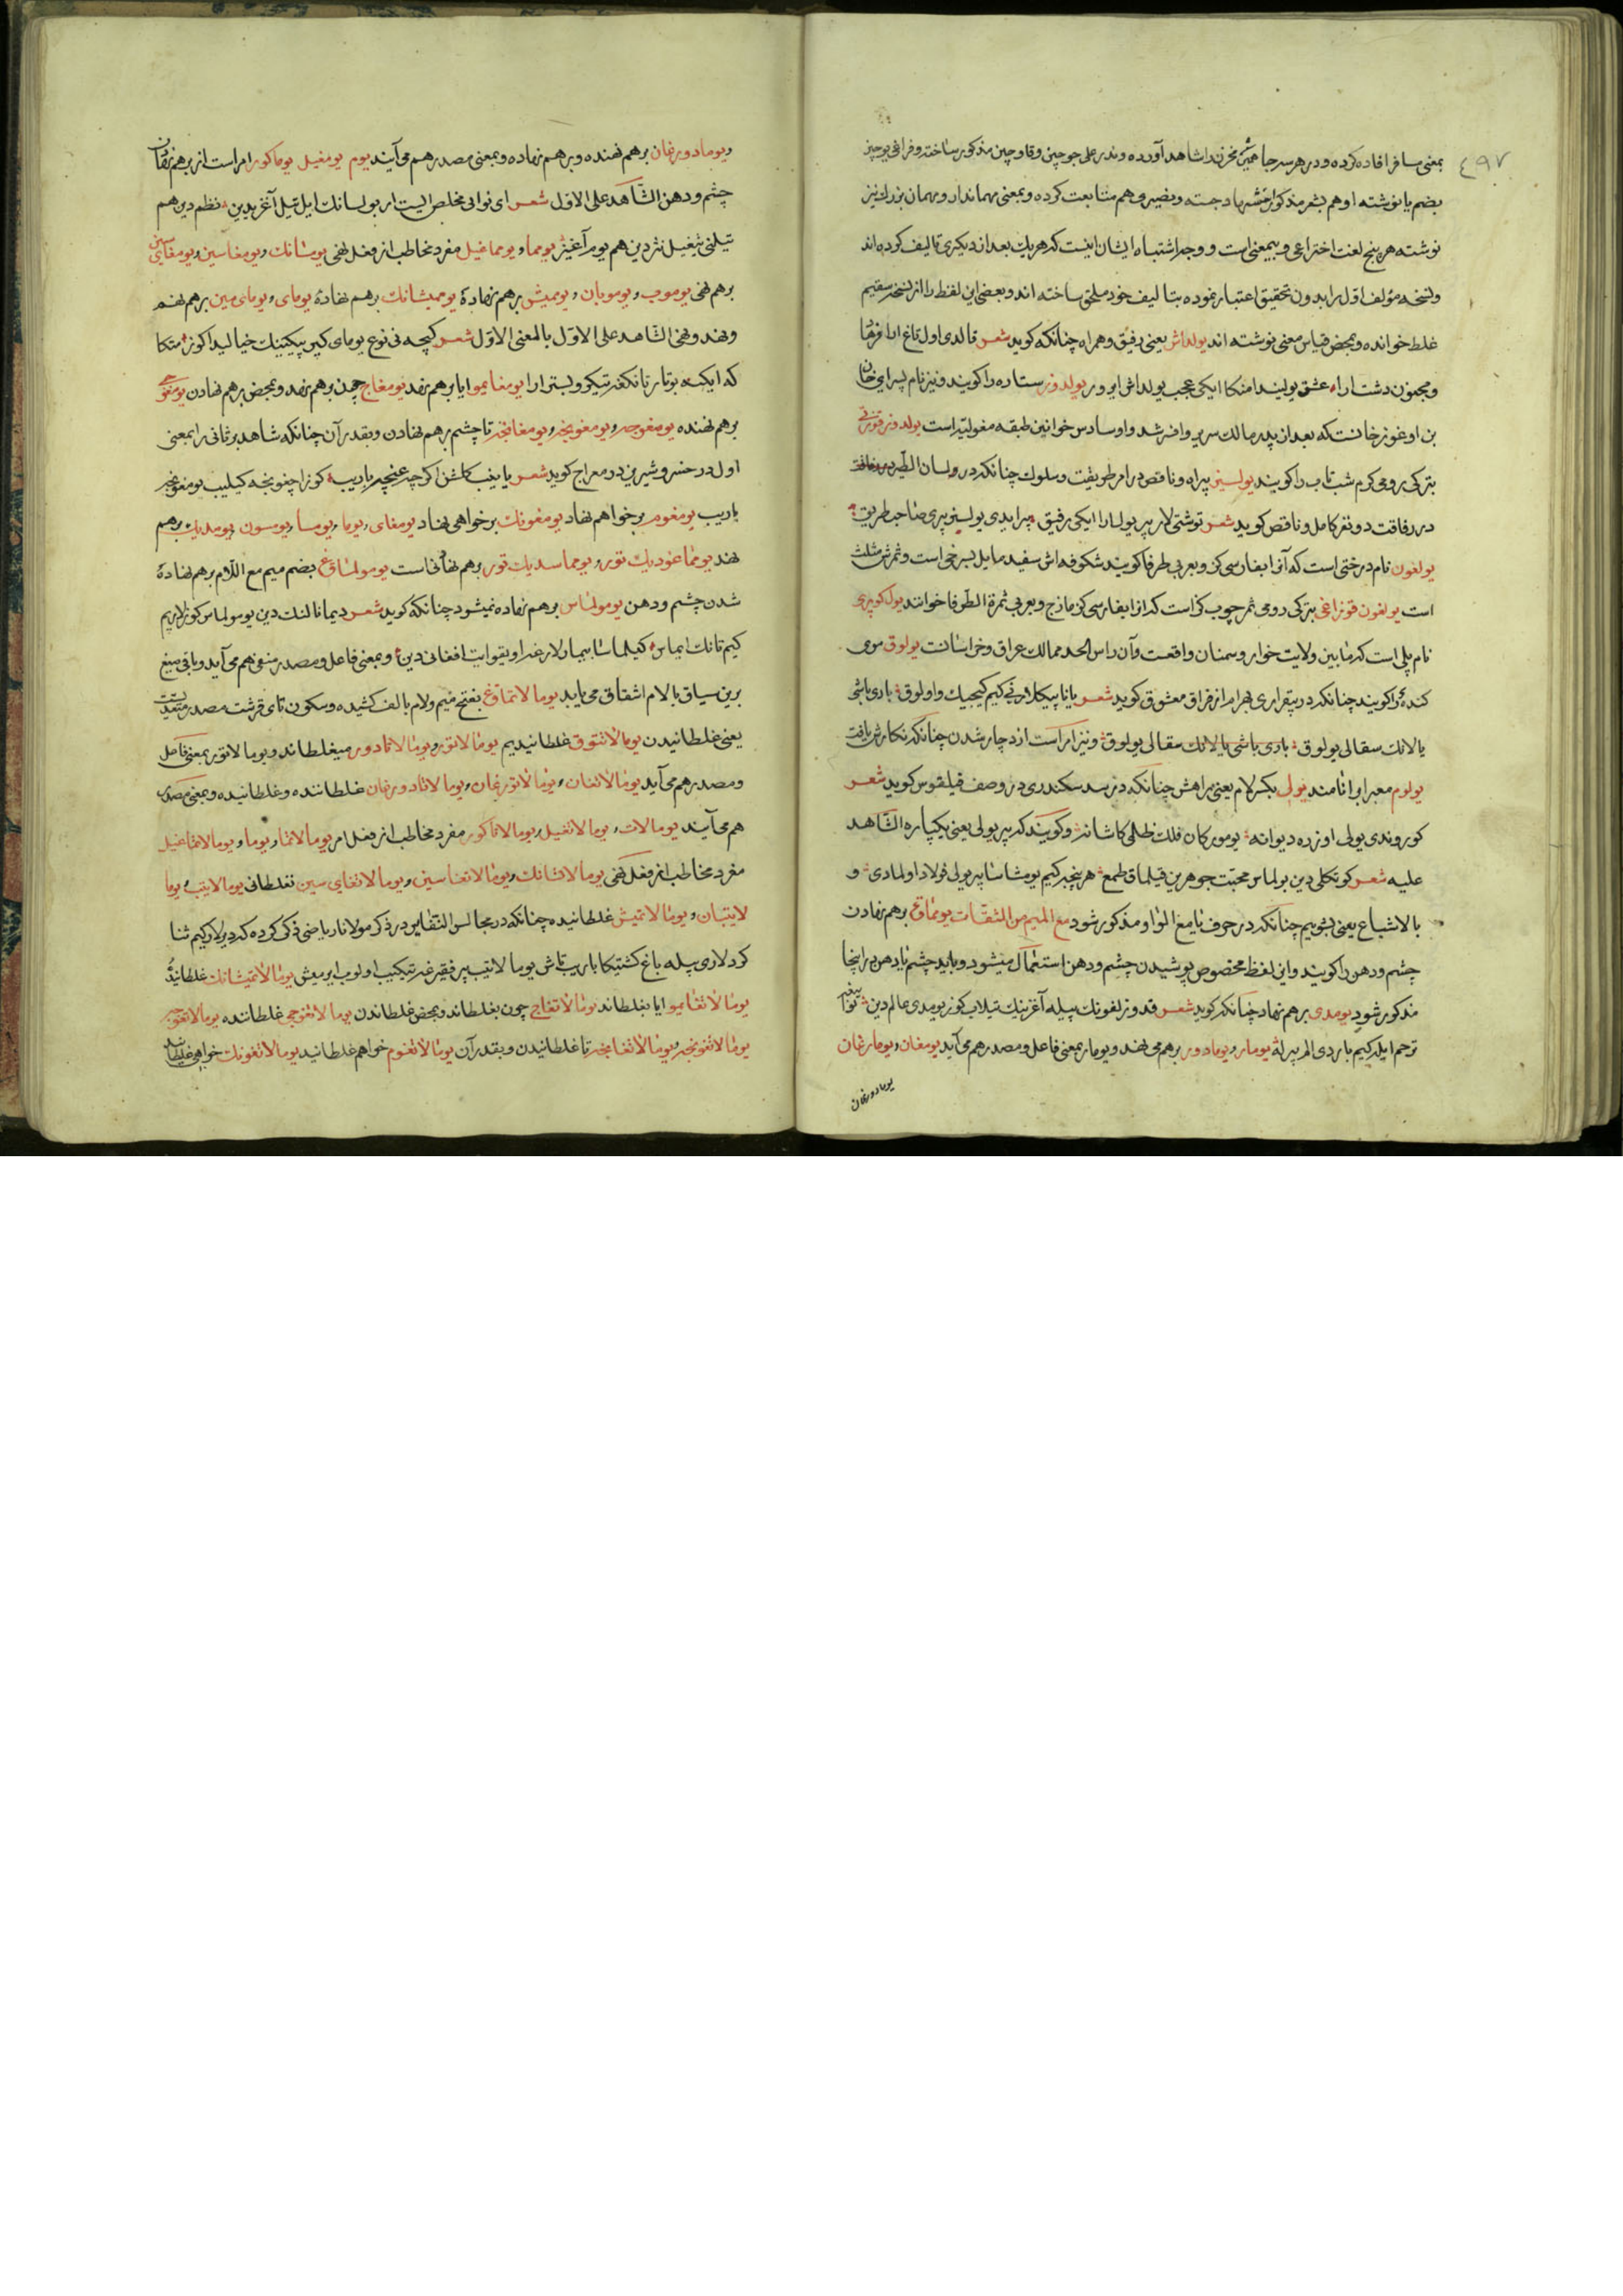 ٤٩٧
بمعنی مسافر افاده کرده و در هر سر جا همین مخزن را شاهد آورده و ندر علی جوجین و قاوجین مذکور ساخته و فراغی یوجین
بضم یا نوشته او هم بشعر مذکور متشبث جسته و نصیری هم متابعت کرده و بمعنی مهماندار و مهمان بزرک نیز
نوشته هر پنج لغت اختراعی و بیمعنی است و وجه اشتباه ایشان اینست که هر یک بعد از دیکری تالیف کرده اند
و نسخه مؤلف اول را بدون تحقیق اعتبار نموده بتالیف خود ملحق ساخته اند و بعضی این لفظ را از نسخه سقیم
غلط خوانده و بمحض قیاس معنی نوشته اند یولداش یعنی رفیق و همراه چنانکه کوید شعر قالدی اول تاغ ارا فرهاد
و مجنون دشت ارا عشق یولیدا منکا ایکی عجب یولداش ایرور یولدوز ستاره را کویند و نیز نام پسر ایی خان
بن اوغوز خانست که بعد از پدر مالک سریر و افسر شد و او سادس خوانین طبقه مغولیه است یولدوز قورتی
بترکی رومی کرم شب تاب را کویند یولسیز بیراه و ناقص در امر طریقت و سلوک چنانکه در لسان الطیر
در رفاقت دو نفر کامل و ناقص کوید شعر توشتی لار بیر یولدا ایکی رفیق بیر ایدی یولسیز بیری صاحب طریق
یولغون نام درختی است که آنرا بفارسی کز و بعربی طرفا کویند شکوفه اش سفید مایل بسرخی است و ثمرش مثلث
است یولغون قوزاغی بترکی رومی ثمر چوب کز است که آنرا بفارسی کزمازج و بعربی ثمرة الطرفا خوانند یول کوپری
نام پلی است که مابین ولایت خوار و سمنان واقعست و آن راس الحد ممالک عراق و خراسانست یولوق موی
کنده را کویند چنانکه در بیقراری بهرام از فراق معشوق کوید شعر
یالانک سقالی یولوق باری باشی یالانک سقالی یولوق و نیز امر است از دچار شدن چنانکه نکارش یافت
یولوم معبر آبی را نامند یولی بکسر لام یعنی راهش چنانکه در سد سکندری در وصف فیلقوس کوید شعر
کوروندی یولی اوزره دیوانه یوموبر کان فلک ظلمی کاشانه و کویند که بیر یولی یعنی یکباره الشاهد
علیه شعر کونکلی دین بولماس محبت جوهرین قیلماق طمع هر نیچه کیم یومشاسا بیر یولی فولاد اولمادی و
بالاشباع یعنی بشوییم چنانکه در حرف یا مع الواو مذکور شود مع المیم من المثقات یومماق برهم نهادن
چشم و دهن را کویند و این لفظ مخصوص پوشیدن چشم و دهن استعمال میشود و باید چشم یا دهن در اینجا
مذکور شود یومدی برهم نهاد چنانکه کوید شعر قدوز لفونک بیله آغزینک تیلاب کوز یومدی عالم دین نوا
ترحم ایله کیم باردی الم بیرله یومار و یومادور برهم می نهد و یومار بمعنی فاعل و مصدر هم می آید یومغان و یومارغان
یومادورغان
و یومادورغان برهم نهنده و برهم نهاده و بمعنی مصدر هم می آیند یوم یومغیل یوماکور امر است از برهم نهادن
چشم و دهن الشاهد علی الاول شعر ای نوایی مخلص ایستار بولسانک ایل تیل آغزیدین نظم دین هم
تیلنی تیغیل نثر دین هم یوم آغیز یومما و یومماغیل مفرد مخاطب از فعل نهی یومسانک و یومغاسین و یومغایسین
برهم نهی یوموب و یوموبان و یومیش برهم نهاده یوممیشانک برهم نهاده یومای و یومای مین برهم نهم
و نهند و نهی الشاهد علی الاول بالمعنی الاول شعر کیچه فی نوع یومای کیرپیکینک خیالیدا کوز متکا
که ایکنه بوتارتانکغه تیکرو بستر ارا یومغایمو ایا برهم نهد یومغاج چون برهم نهد و بمحض برهم نهادن یومغوچی
برهم نهنده یومغوجه و یومغونجه و یومغانجه تا چشم برهم نهادن و بقدر آن چنانکه شاهد بر ثانی را بمعنی
اول در خسرو شیرین در معراج کوید شعر یایب کلشن کرچه غنچه یاریب کوز اچغونجه کیلیب یومغونجه
باریب یومغوم برخواهم نهاد یومغونک برخواهی نهاد یومغای یوما یومسا یومسون یومدیک برهم
نهد یومماغودیک تور یومماسدیک تور برهم نهادنی است یومولماق بضم میم مع اللام برهم نهاده
شدن چشم و دهن یومولماس برهم نهاده نمیشود چنانکه کوید شعر دیمانکالنک دین یومولماس کوزلاریم
کیم تانک ایماس کیلماسا بیمارلارغه اویقو ایت افغانی دین و بمعنی فاعل و مصدر منفی هم می آید و باقی صیغ
برین سیاق بالام اشتقاق می یابد یومالاتماق بفتح میم و لام بالف کشیده و سکون تای قرشت مصدر متعدیست
یعنی غلطانیدن یومالاتتوق غلطانیدیم یومالاتور و یومالاتادور میغلطاند و یومالاتور بمعنی فاعل
و مصدر هم می آید یومالاتغان و یومالاتورغان و یومالاتادورغان غلطاننده و غلطانیده و بمعنی مصدر
هم می آیند یومالات یومالاتغیل یومالاتاکور مفرد مخاطب از فعل امر یومالاتما و یومالاتماغیل
مفرد مخاطب از فعل نهی یومالاتسانک و یومالاتغاسین و یومالاتغای سین بغلطانی یومالاتیب یوما
لاتیبان و یومالاتمیش غلطانیده چنانکه در مجالس النفایس در ذکر مولانا ریاضی ذکر کرده که دیرلار کیم ثنا
کردلاری بیله باغ کشتیکا باریب تاش یومالاتیب بیر فقیرغه تیکیب اولوب ایرمیش یومالاتمیشانک غلطانیده
یومالاتغایمو ایا بغلطاند یومالاتغاج چون بغلطاند و بمحض غلطاندن یومالاتغوچی غلطاننده یومالاتغوجه
یومالاتغونجه و یومالاتغانجه تا غلطانیدن و بقدر آن یومالاتغوم خواهم غلطانید یومالاتغونک خواهی غلطانید